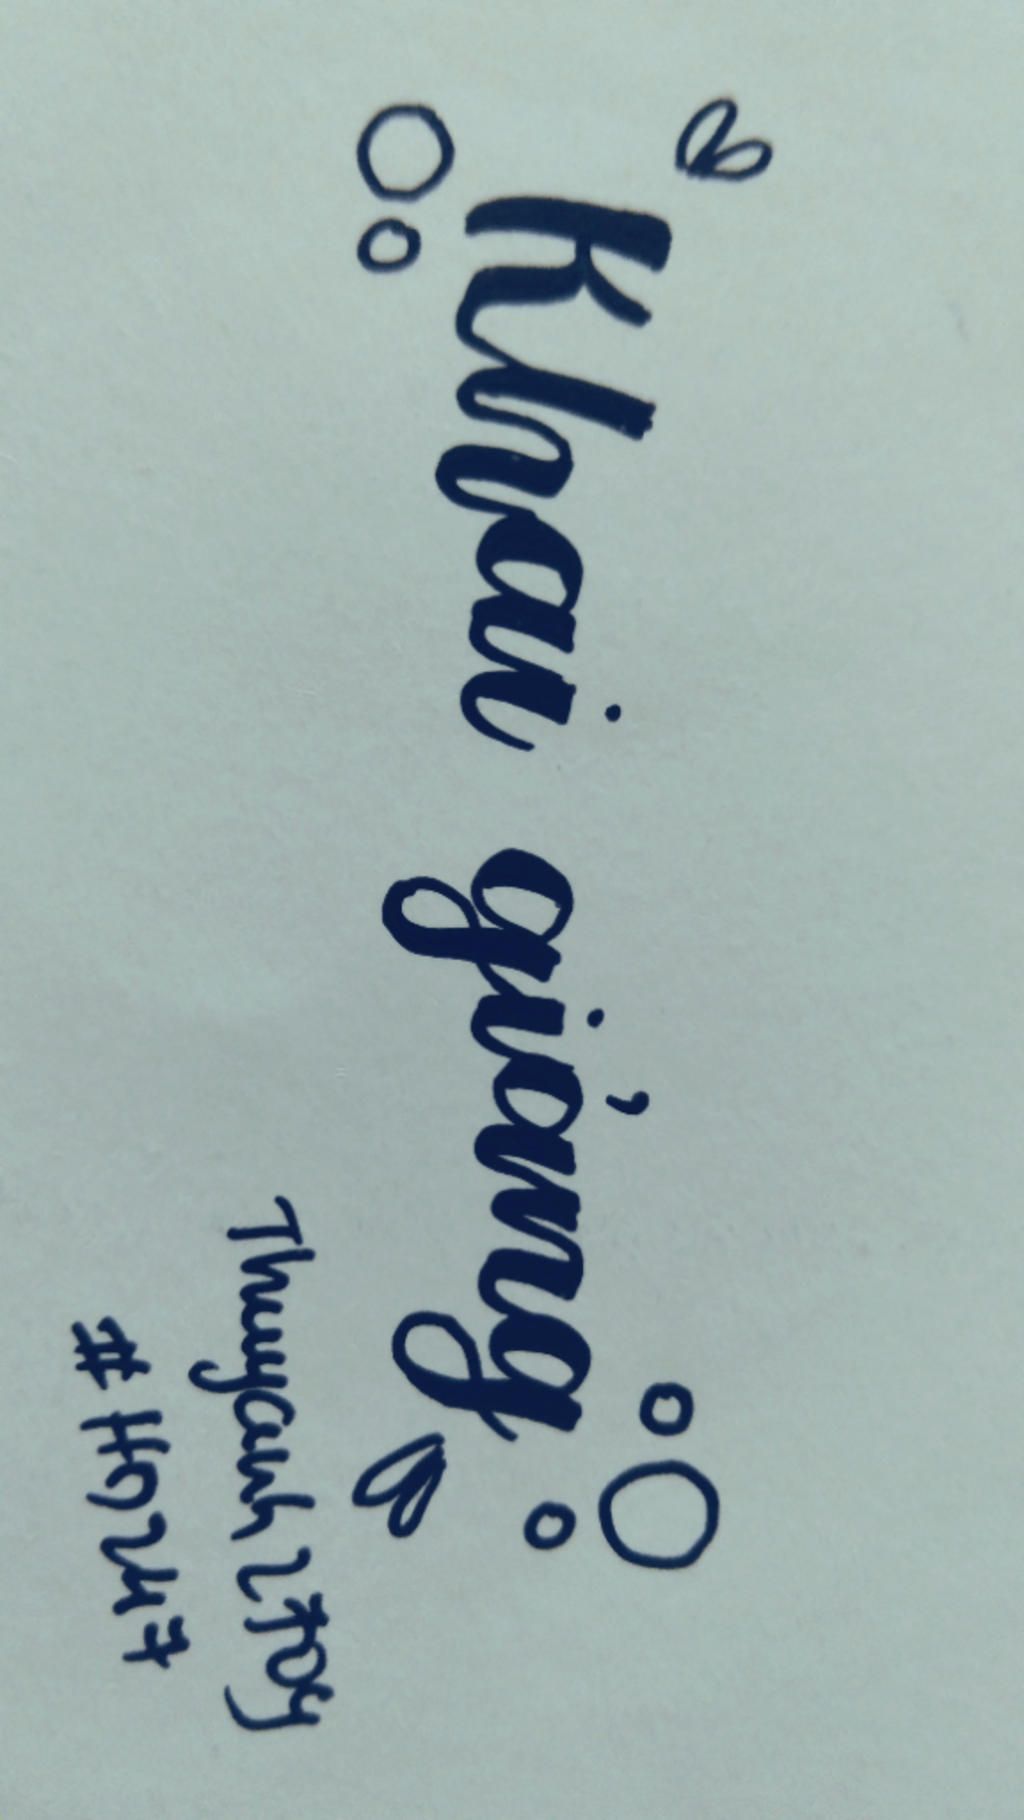 Khai giảng
Thuyanh2709
#H9247